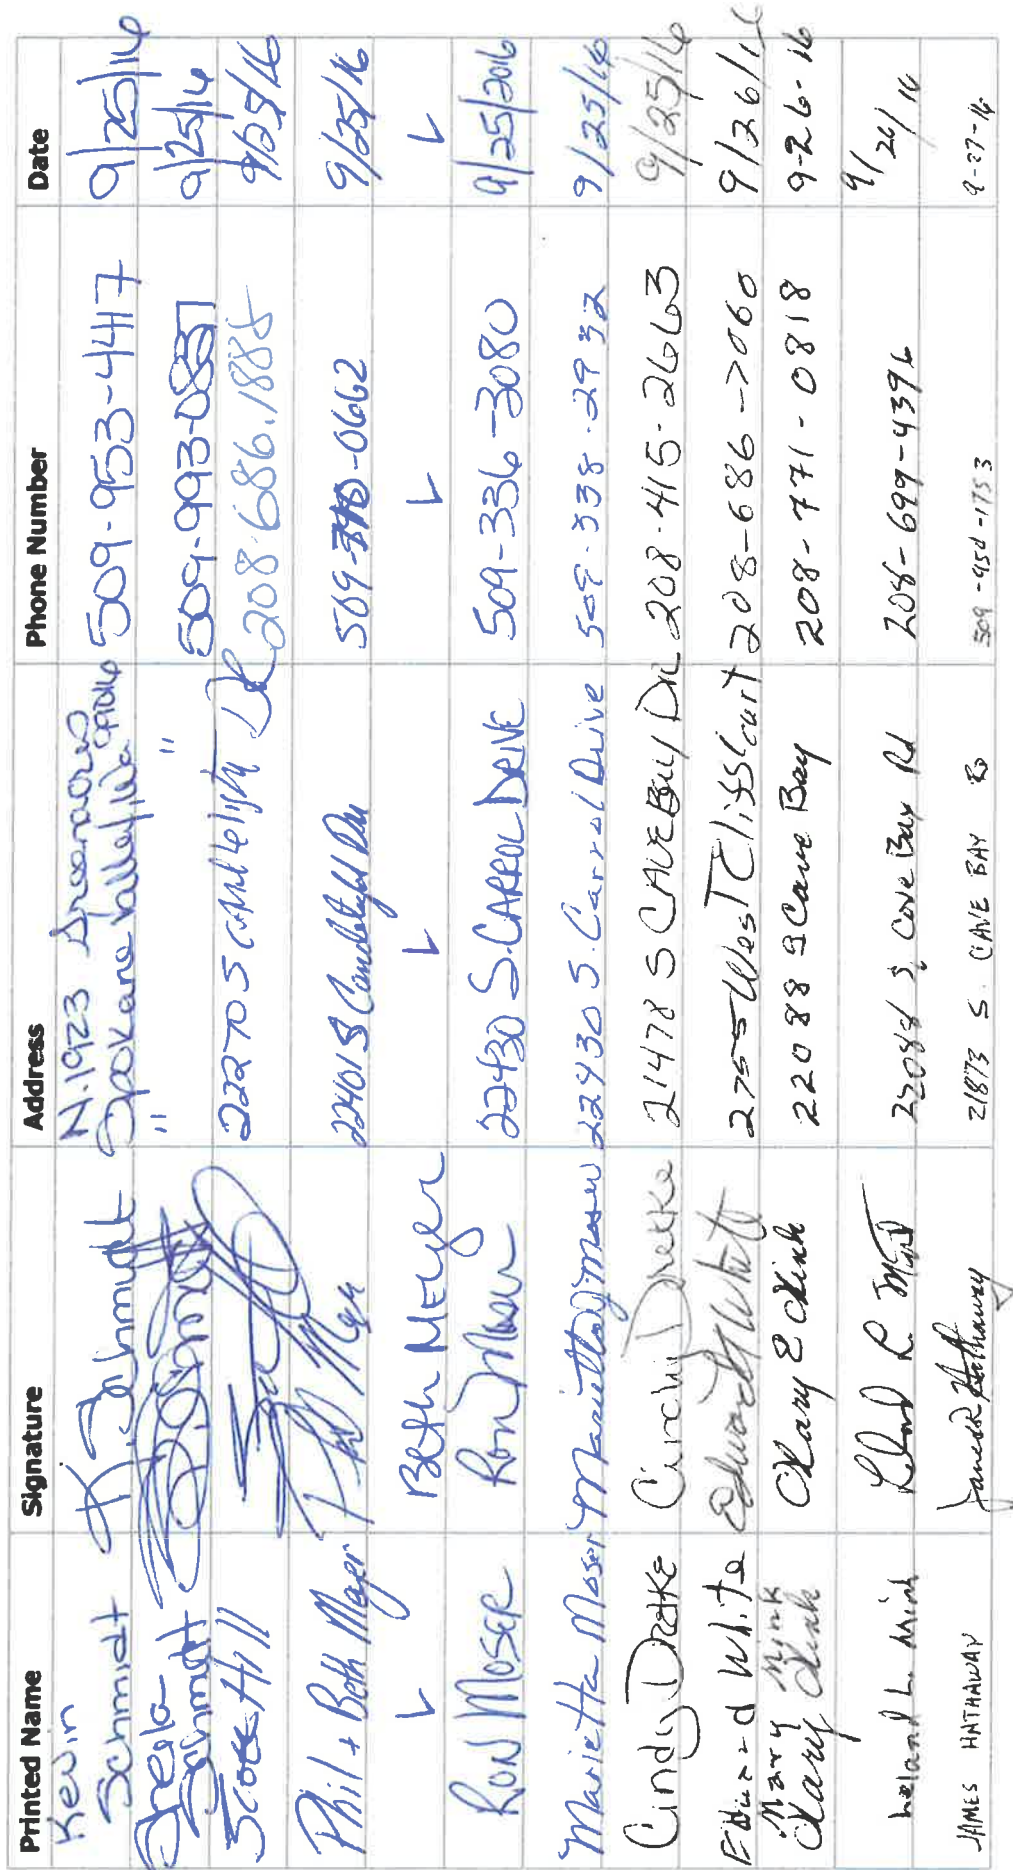 Printed Name Signature Address Phone Number Date
Kevin Schmidt K Schmidt N. 1923 Greenacres 509-953-4417 9/25/16
Spokane Valley, Wa 99016
Sheila Schmidt " " 509-993-0837 9/25/16
Scott Hill 22270 S Candlelight Dr 208.686.1885 9/25/16
Phil + Beth Meyer 22401 S Candlelight Dr 509-710-0662 9/25/16
✓ Beth Meyer ✓ ✓ ✓
Ron Moser Ron Moser 22430 S. Carrol Drive 509-336-3080 9/25/2016
Marietta Moser Marietta Moser 22430 S. Carrol Drive 509-338-2932 9/25/16
Cindy Dretke Cindy Dretke 21478 S Cave Bay Dr 208-415-2663 9/25/16
Edward White Edward White 2755 West Cliff Court 208-686-7060 9/26/16
Mary Mink
Mary Mink Mary E Mink 22088 S Cave Bay 208-771-0818 9-26-16
Leland L. Mink Leland R. Mink 22088 S Cave Bay Rd 208-699-4396 9/26/16
JAMES HATHAWAY James Hathaway 21873 S. CAVE BAY RD 509-950-1753 9-27-16